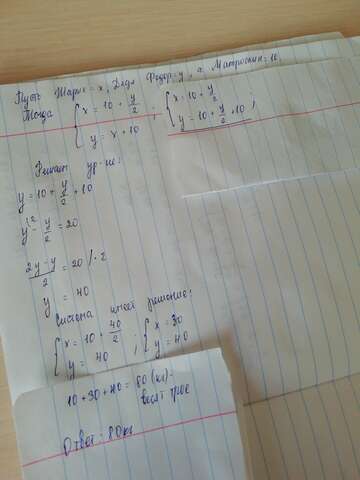 Пусть Шарик = x, Дядя Федор = y, а Матроскин = 10.
Тогда { x = 10 + y/2 ; { x = 10 + y/2
y = x + 10 y = 10 + y/2 + 10 ;
Решаем ур-ие:
y = 10 + y/2 + 10
y - y/2 = 20
2y - y/2 = 20 / · 2
y = 40
Система имеет решение:
{ x = 10 + 40/2 ; { x = 30
y = 40 y = 40
10 + 30 + 40 = 80 (кг) -
весят трое
Ответ: 80кг